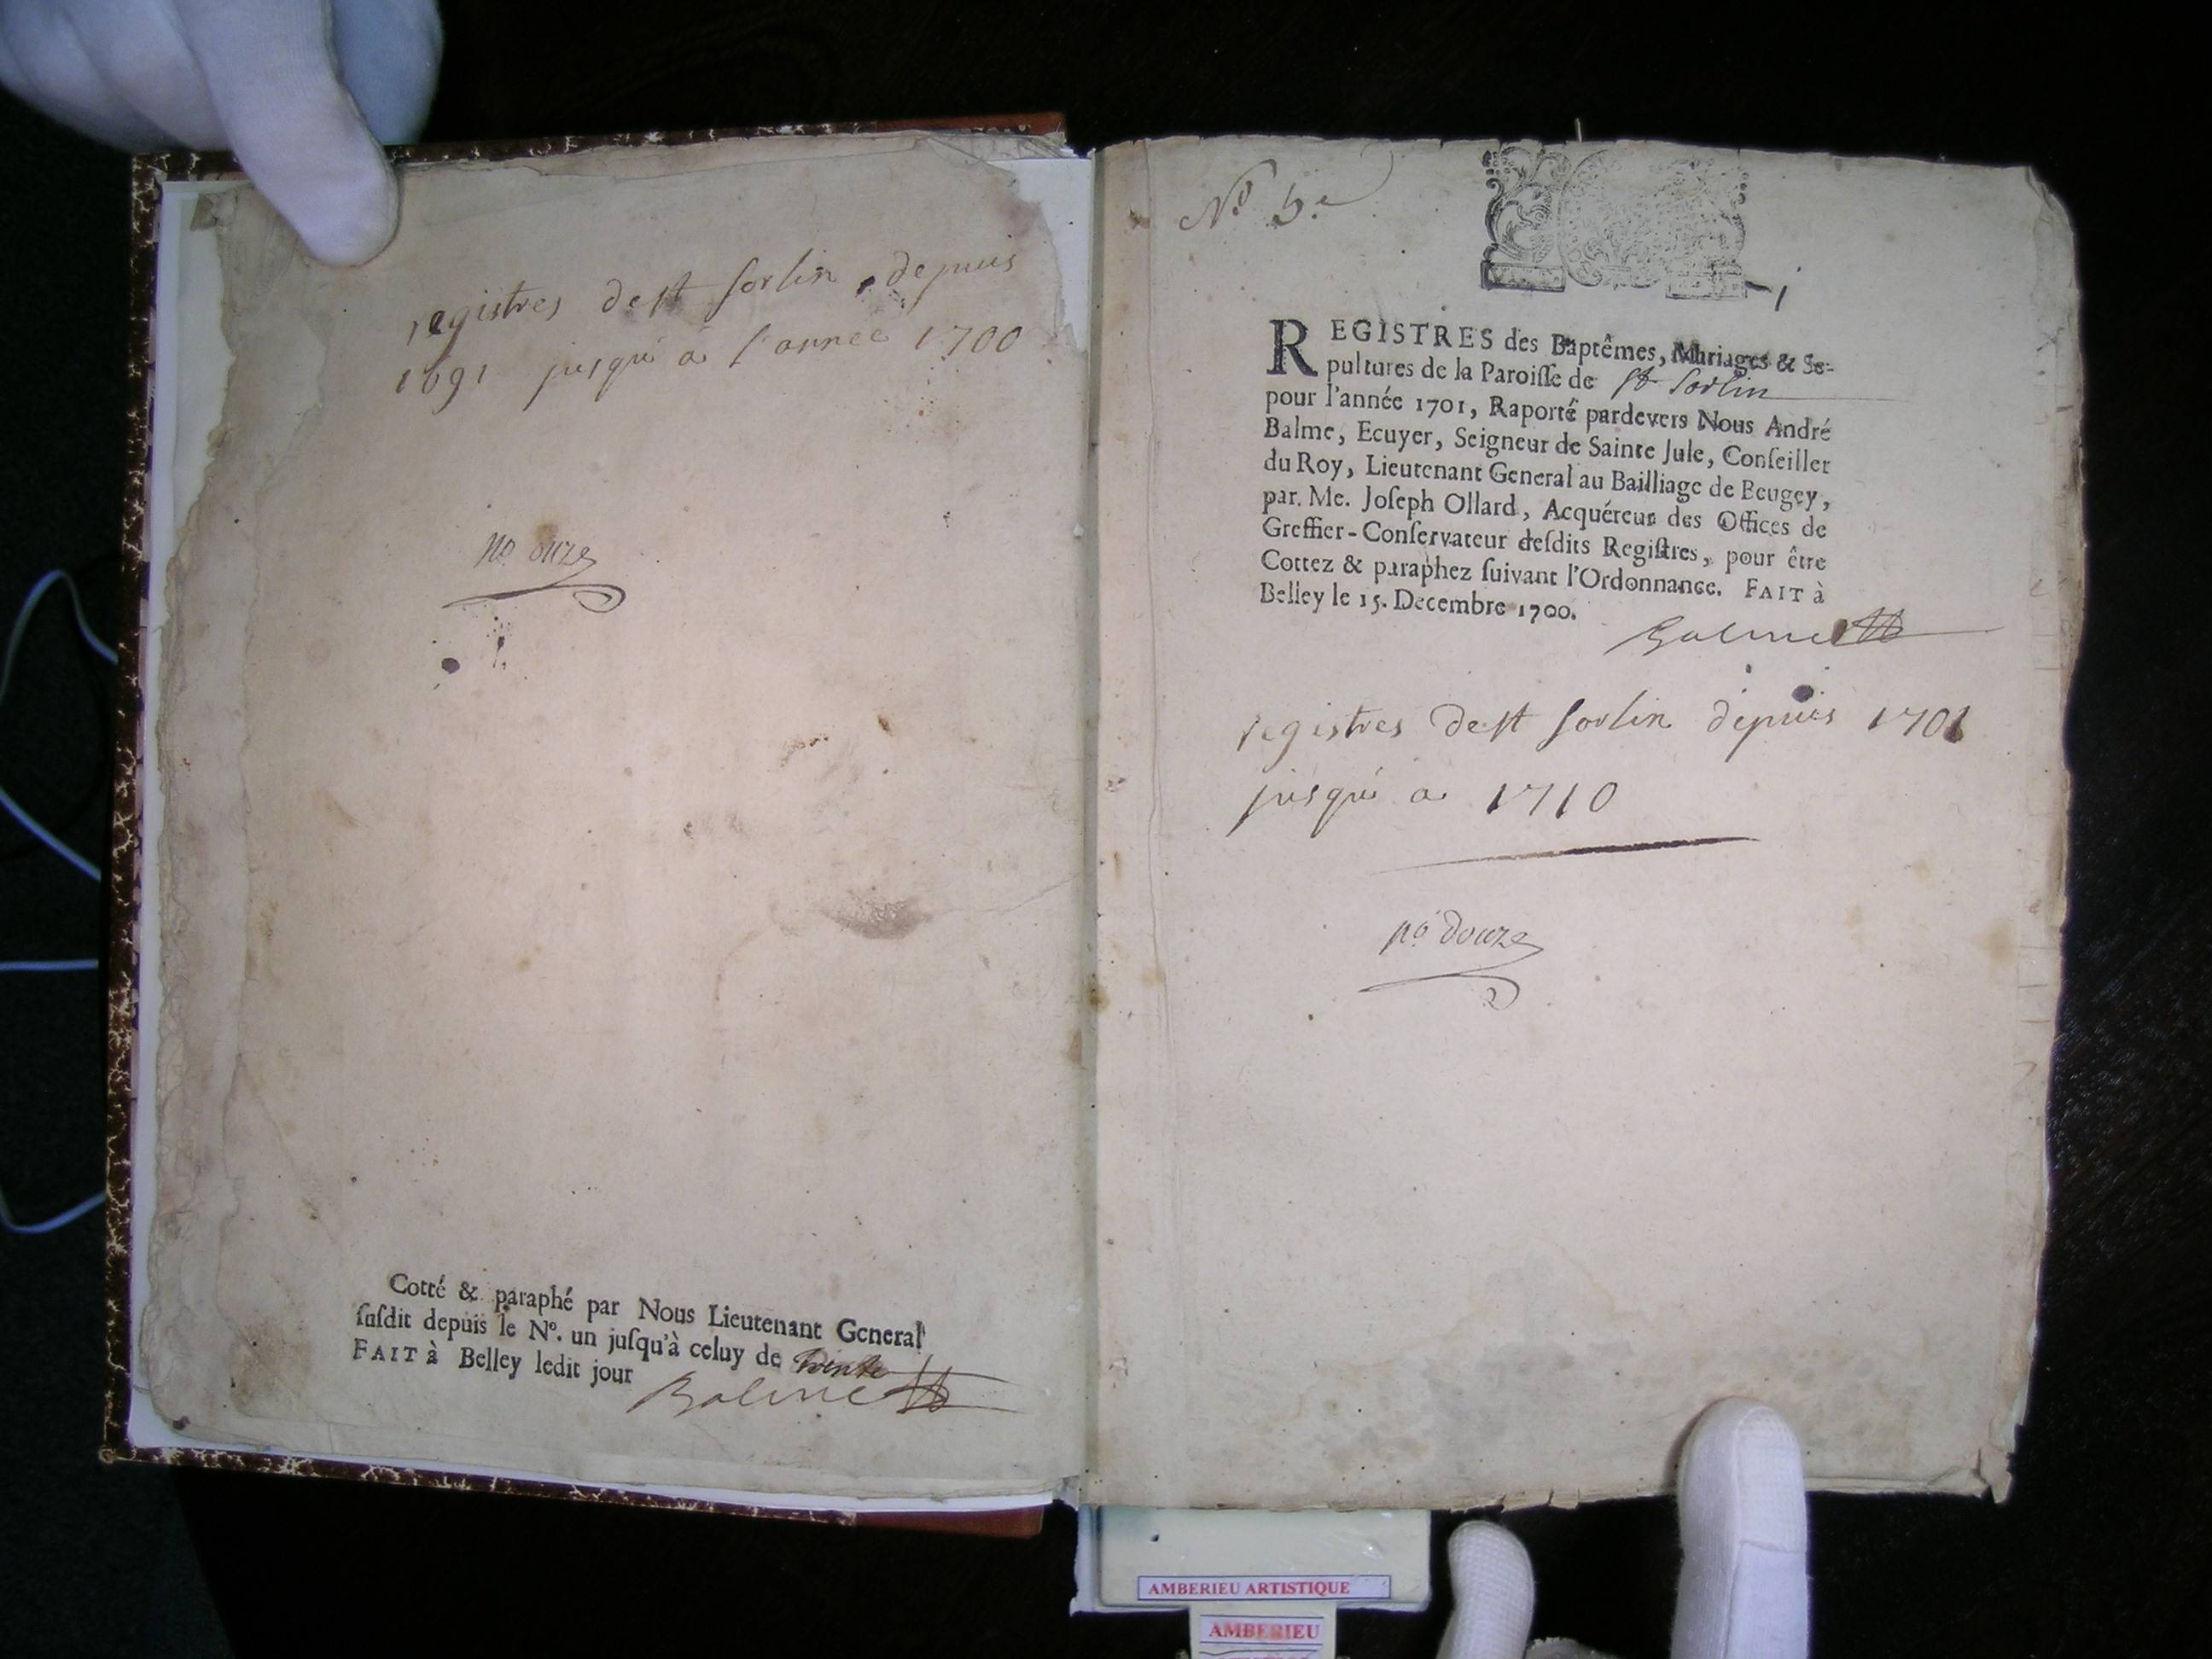 registres de st sorlin, depuis
1691 jusqu'a l'année 1700
no. onze
Cotté & paraphé par Nous Lieutenant General
ſuſdit depuis le N°. un juſqu'à celuy de trente
FAIT à Belley ledit jour
Balme
No 5.e
REGISTRES des Baptêmes, Mariages & Se-
pultures de la Paroiſſe de St Sorlin
pour l'année 1701, Raporté pardevers Nous André
Balme, Ecuyer, Seigneur de Sainte Jule, Conſeiller
du Roy, Lieutenant General au Bailliage de Beugey,
par. Me. Joſeph Ollard, Acquéreur des Offices de
Greffier-Conſervateur deſdits Regiſtres, pour être
Cottez & paraphez ſuivant l'Ordonnance. FAIT à
Belley le 15. Decembre 1700.
Balme
registres de st sorlin depuis 1701
jusqu'a 1710
no. douze
AMBERIEU ARTISTIQUE
AMBERIEU